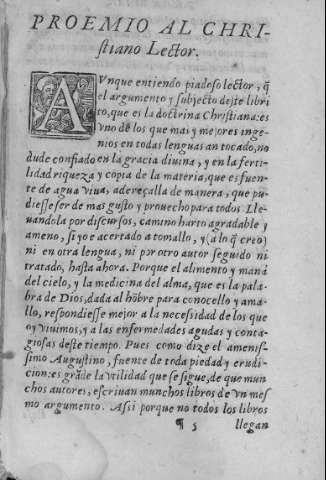 PROEMIO AL CHRI-
ſtiano Lector.
AVnque entiendo piadoſo lector, q̃
el argumento y ſubjecto deſte libri
to, que es la doctrina Chriſtiana: es
vno de los que mas y mejores inge-
nios en todas lenguas an tocado, no
dude confiado en la gracia diuina, y en la ferti-
lidad riqueza y copia de la materia, que es fuen
te de agua viua, adereçalla de manera, que pu-
dieſſe ſer de mas guſto y prouecho para todos Lle
uandola por diſcurſos, camino harto agradable y
ameno, ſi yo e acertado a tomallo, y (a lo q̃ creo)
ni en otra lengua, ni por otro autor ſeguido ni
tratado, haſta ahora. Porque el alimento y maná
del cielo, y la medicina del alma, que es la pala-
bra de Dios, dada al hõbre para conocello y ama-
llo, reſpondieſſe mejor a la neceſidad de los que
oy viuimos, y a las enfermedades agudas y conta-
gioſas deſte tiempo. Pues como dize el ameniſ-
ſimo Auguſtino, fuente de toda piedad y erudi-
cion: es grãde la vtilidad que ſe ſigue, de que mun
chos autores, eſcriuan munchos libros de vn meſ
mo argumento. Aſsi porque no todos los libros
¶ 5 llegan